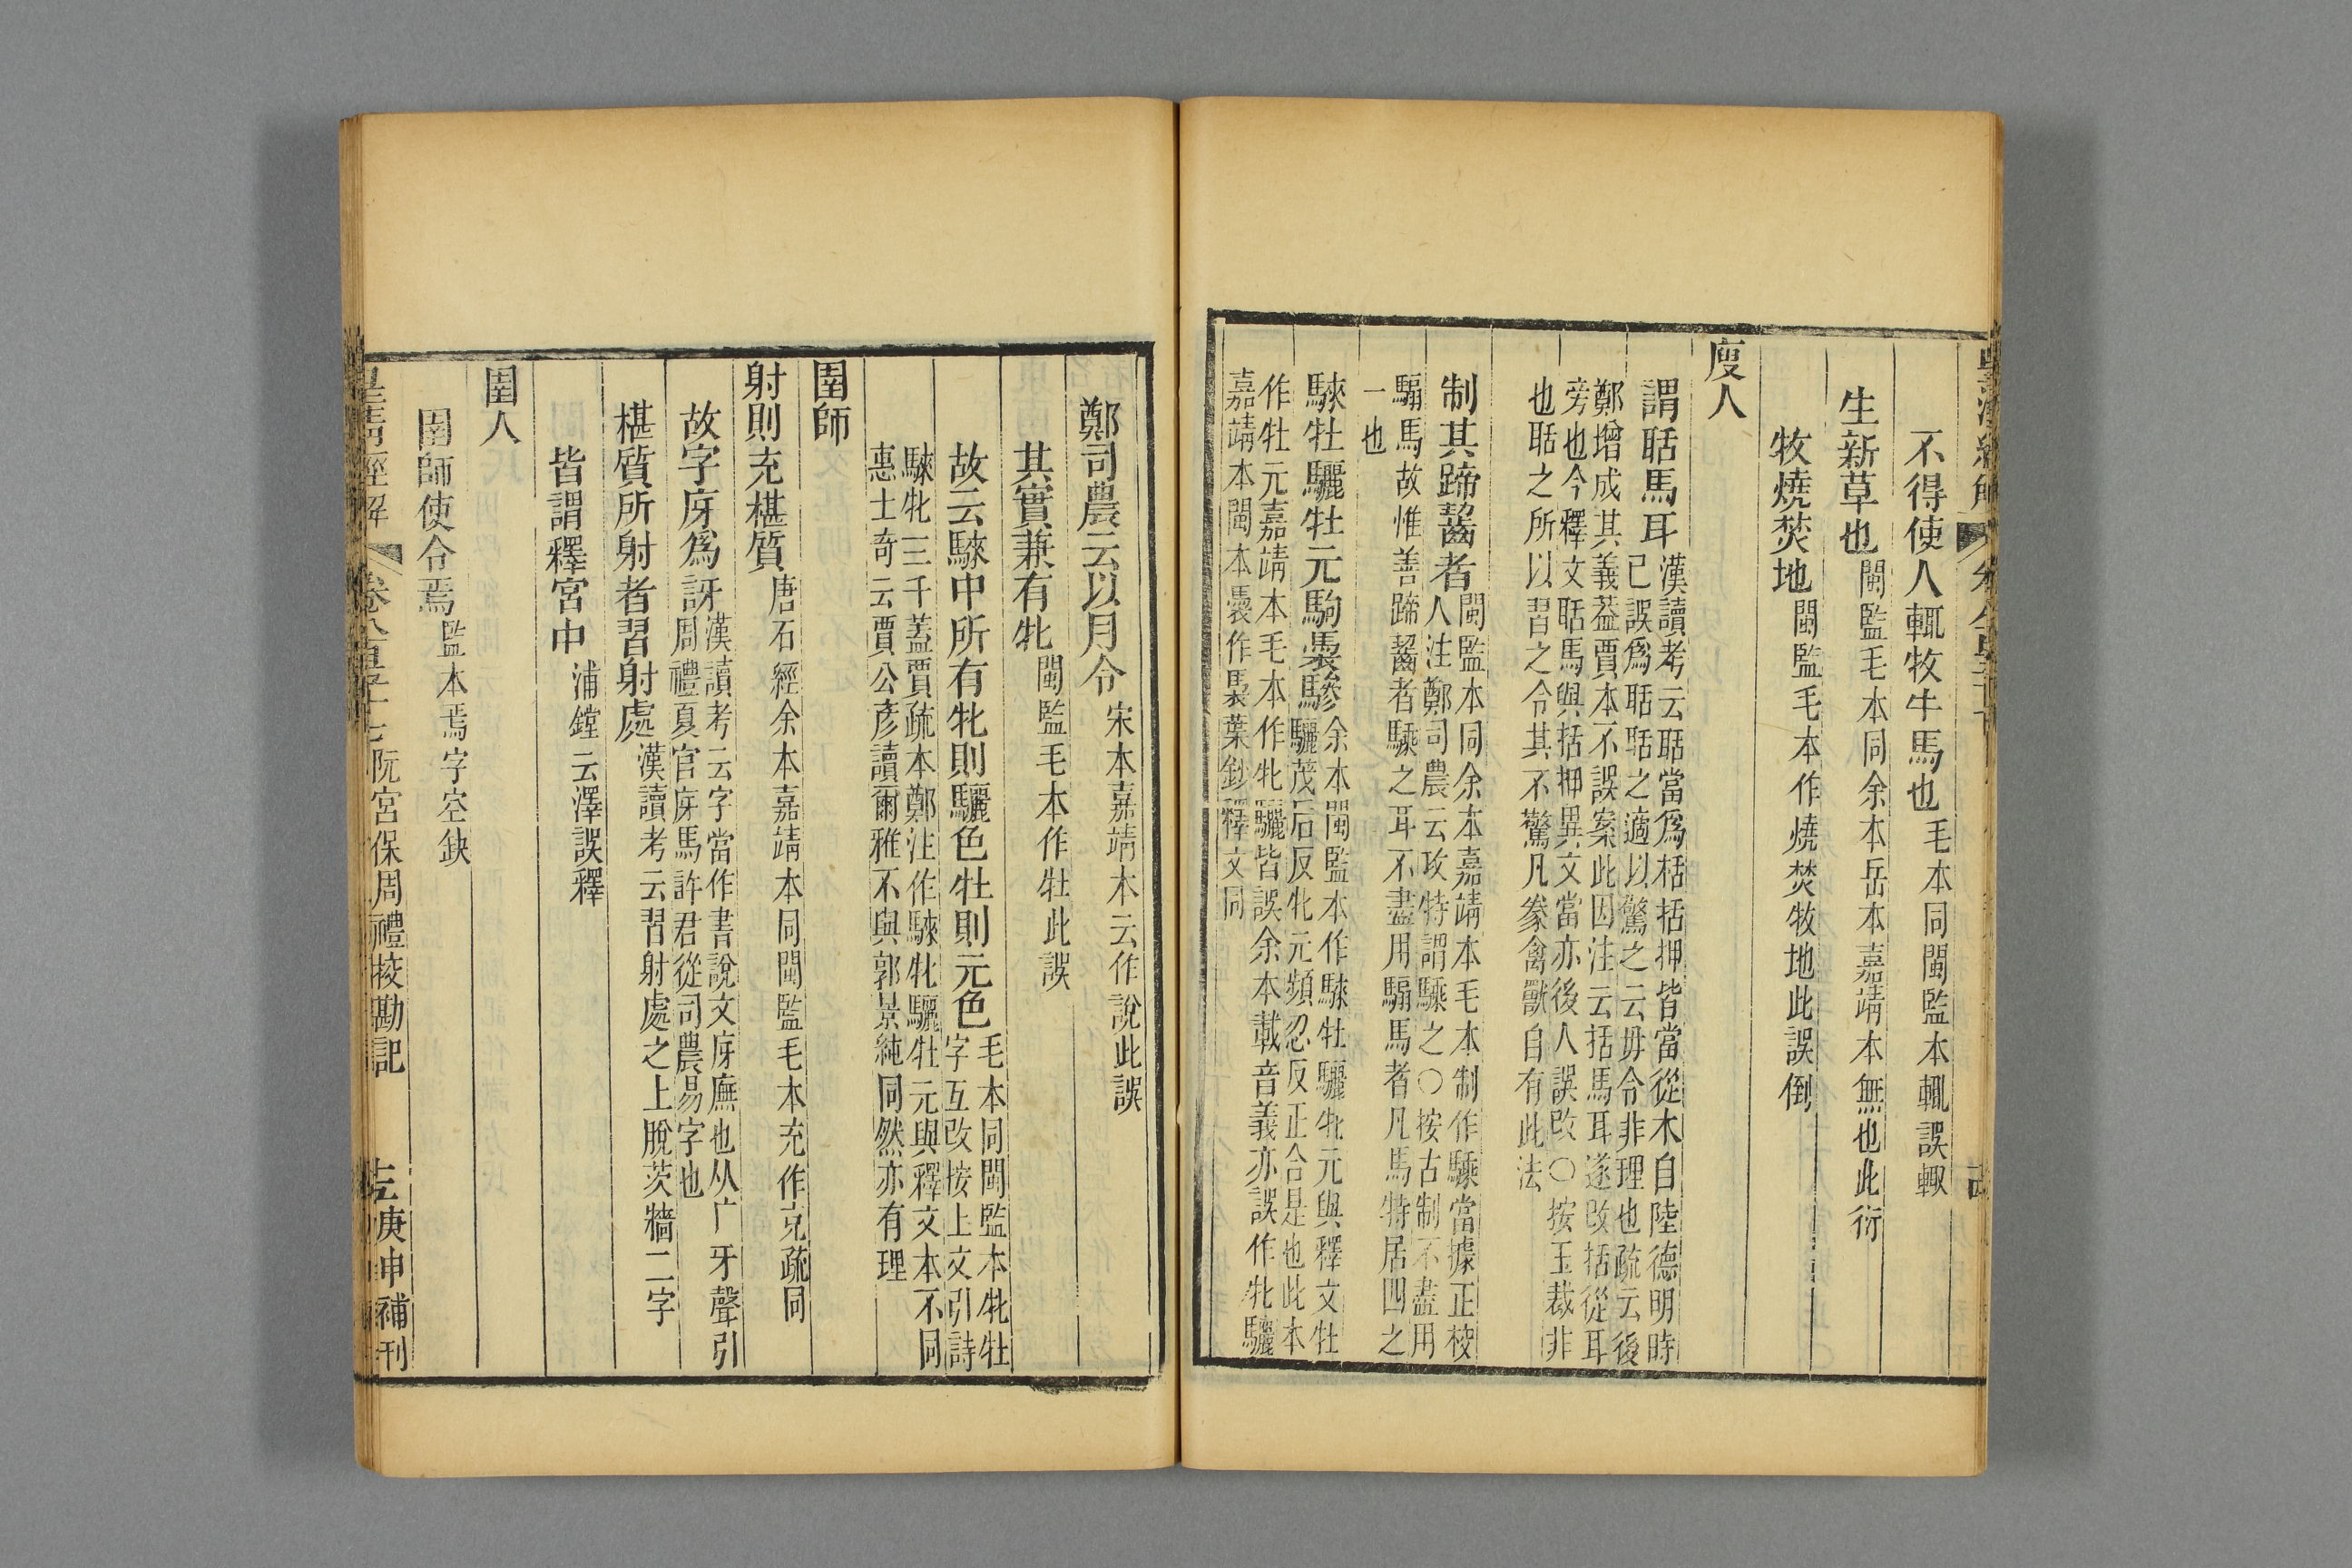 不得使人輒牧牛馬也毛本同閩監本輒誤輙
生新草也閩監毛本同余本岳本嘉靖本無也此衍
牧燒焚地閩監毛本作燒焚牧地此誤倒
廋人
謂聒馬耳漢讀考云聒當爲栝栝押皆當從木自陸德明時
已誤爲聒聒之適以驚之云毋令非理也疏云後
鄭增成其義葢賈本不誤案此因注云括馬耳遂改括從耳
旁也今釋文聒馬與括押異文當亦後人誤改○按玉裁非
也聒之所以習之令其不驚凡豢禽獸自有此法
制其蹄齧者閩監本同余本嘉靖本毛本制作騬當據正校
人注鄭司農云攻特謂騬之○按古制不盡用
騸馬故惟善蹄齧者騬之耳不盡用騸馬者凡馬特居四之
一也
騋牡驪牡元駒褭驂余本閩監本作騋牡驪牝元與釋文牡
驪茂后反牝元頻忍反正合是也此本
作牡元嘉靖本毛本作牝驪皆誤余本載音義亦誤作牝驪
嘉靖本閩本褭作裊葉鈔釋文同
鄭司農云以月令宋本嘉靖本云作說此誤
其實兼有牝閩監毛本作牡此誤
故云騋中所有牝則驪色牡則元色毛本同閩監本牝牡
字互改按上文引詩
騋牝三千蓋賈疏本鄭注作騋牝驪牡元與釋文本不同
惠士奇云賈公彦讀爾雅不與郭景純同然亦有理
圉師
射則充椹質唐石經余本嘉靖本同閩監毛本充作充疏同
故字庌爲訝漢讀考云字當作書說文庌廡也从广牙聲引
周禮夏官庌馬許君從司農易字也
椹質所射者習射處漢讀考云習射處之上脫茨牆二字
皆謂釋宮中浦鏜云澤誤釋
圉人
圉師使令焉監本焉字空缺
皇清經解 卷八百五十七阮宮保周禮挍勘記 庚申補刊